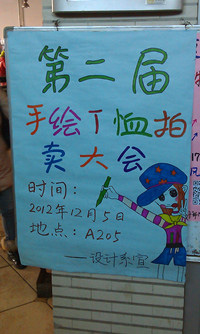 第二届
手绘丁恤拍
卖大会
时间：
2012年12月5日
地点：A205
——设计系宣